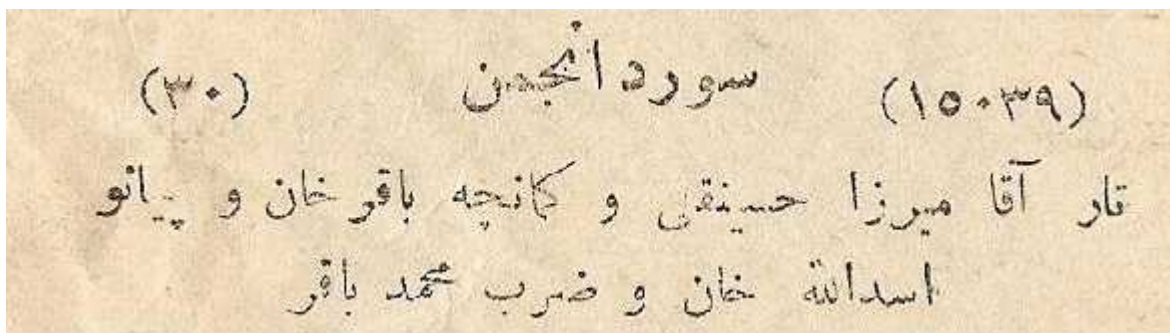 (۱۵۰۳۹) سورد انجمن (۳۰)
تار آقا میرزا حسینقلی و کمانچه باقر خان و پیانو
اسدالله خان و ضرب محمد باقر